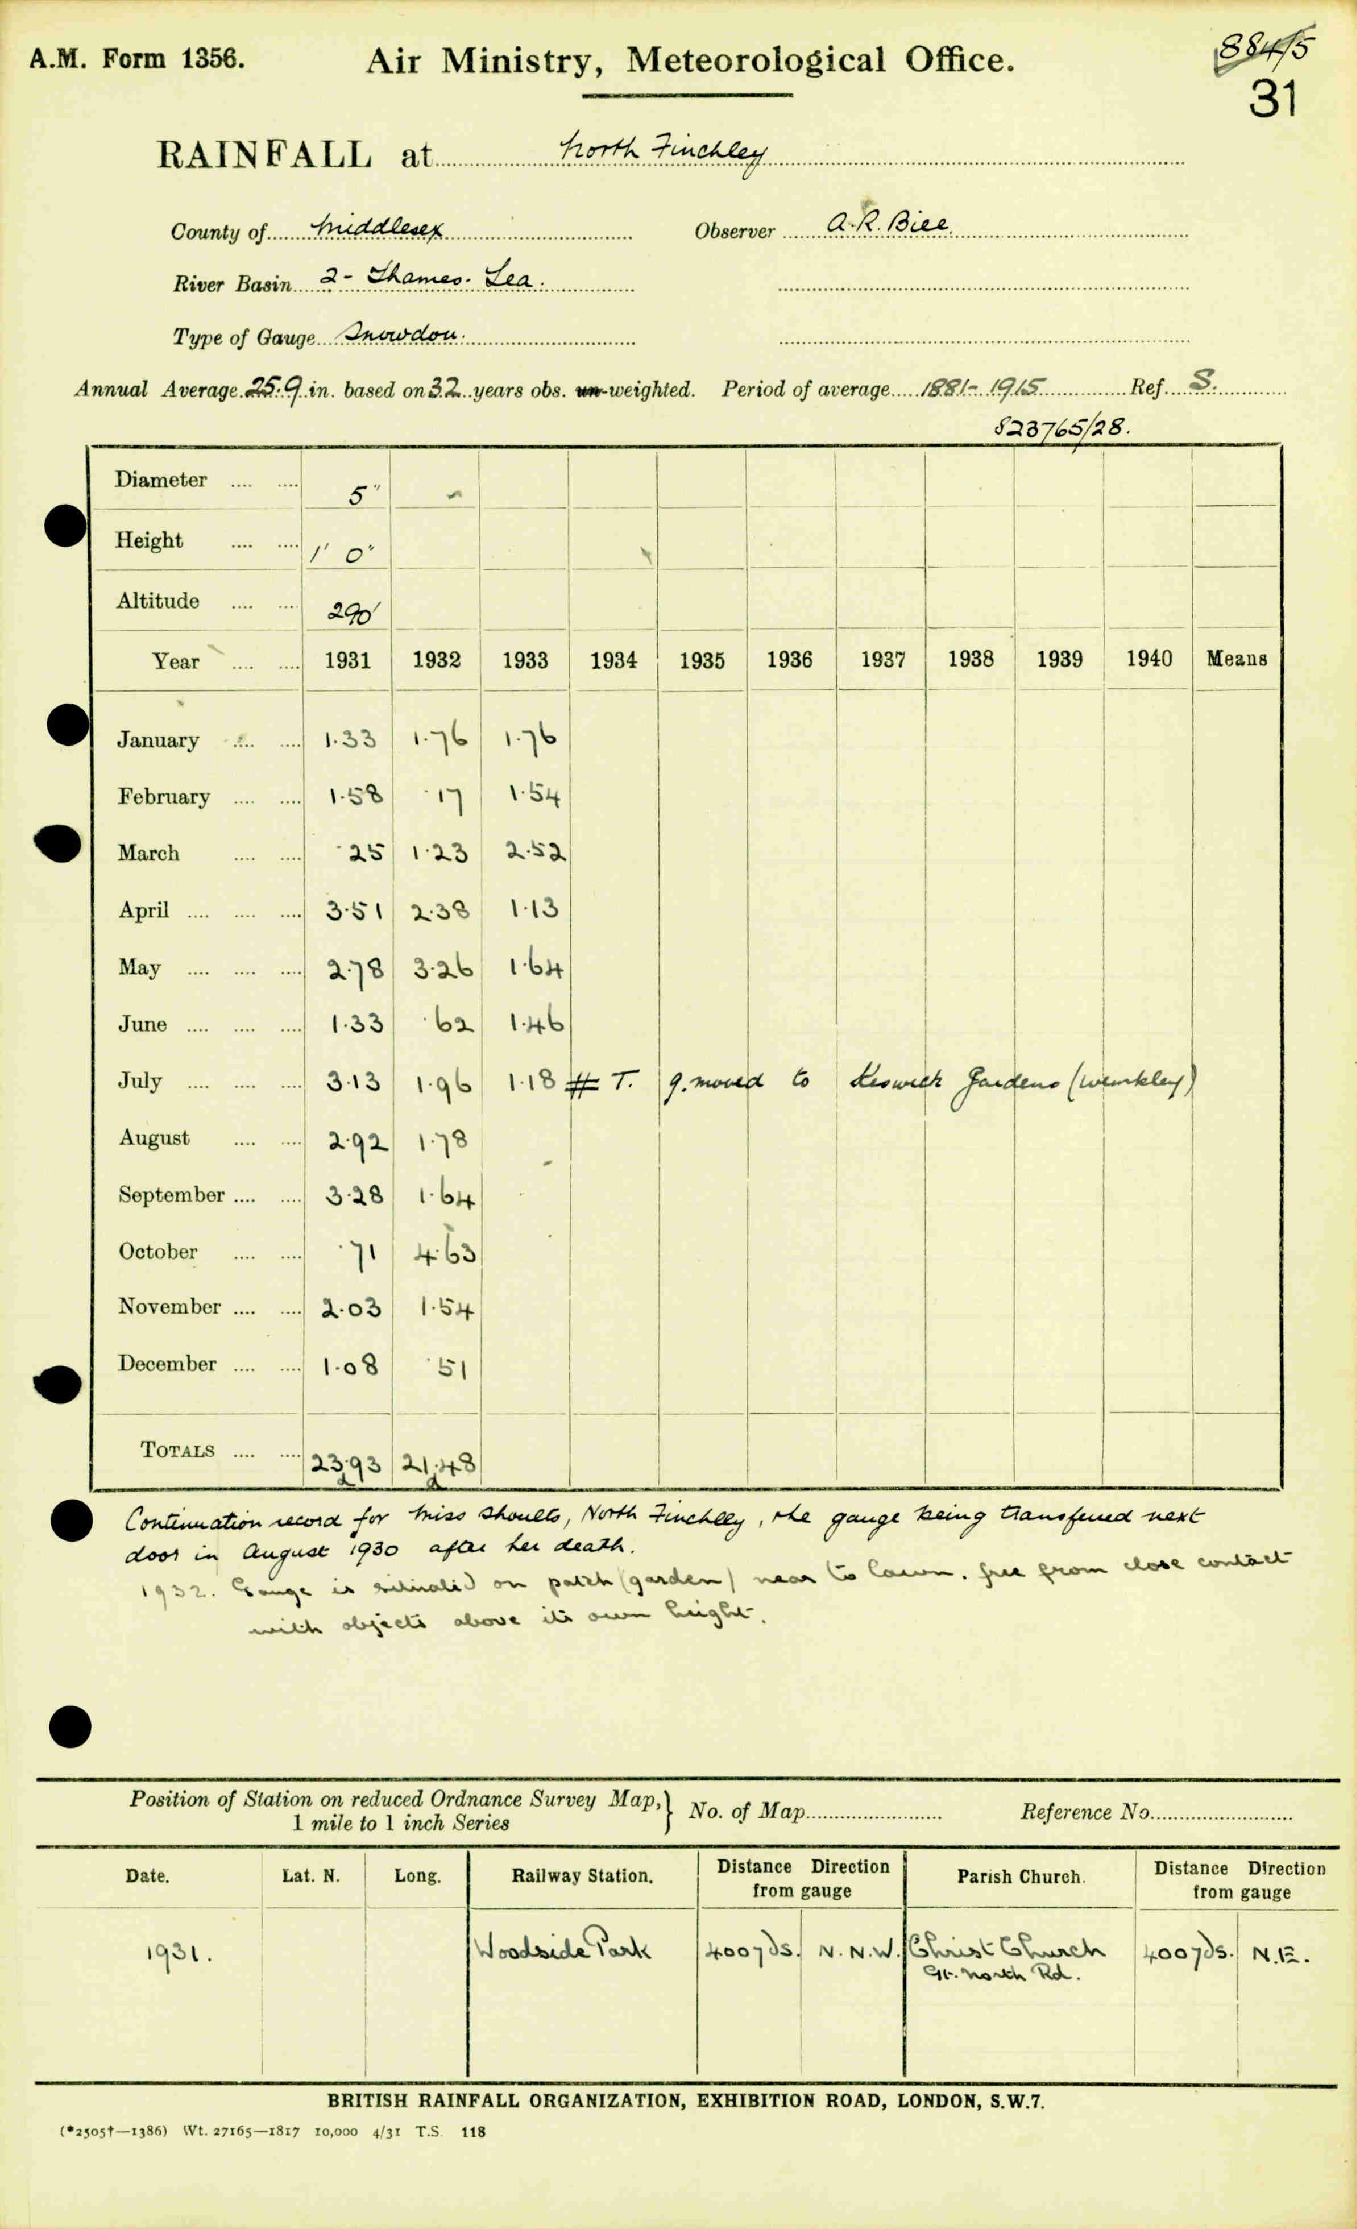 A.M. Form 1356.
Air Ministry, Meteorological Office.
884/5
31
RAINFALL at North Finchley
County of Middlesex
Observer A. R. Bice
River Basin 2 - Thames. Lea.
Type of Gauge Snowdon.
Annual Average 25.9 in. based on 32 years obs. un-weighted. Period of average 1881-1915 Ref. S.
823765/28.
Diameter .... .... 5"
Height .... .... 1' 0"
Altitude .... .... 290'
Year .... .... 1931 1932 1933 1934 1935 1936 1937 1938 1939 1940 Means
January .... .... 1.33 1.76 1.76
February .... .... 1.58 .17 1.54
March .... .... .25 1.23 2.52
April .... .... .... 3.51 2.38 1.13
May .... .... .... 2.78 3.26 1.64
June .... .... .... 1.33 .62 1.46
July .... .... .... 3.13 1.96 1.18 # T. g. moved to Keswick Gardens (Wembley)
August .... .... 2.92 1.78
September .... .... 3.28 1.64
October .... .... .71 4.63
November .... .... 2.03 1.54
December .... .... 1.08 .51
TOTALS .... .... 23.93 21.48
Continuation record for Miss Shoults, North Finchley, the gauge being transferred next
door in August 1930 after her death.
1932. Gauge is situated on patch (garden) near to lawn, free from close contact
with objects above its own height.
Position of Station on reduced Ordnance Survey Map,
1 mile to 1 inch Series
No. of Map
Reference No.
Date. Lat. N. Long. Railway Station. Distance Direction from gauge Parish Church. Distance Direction from gauge
1931. Woodside Park 400 yds. N.N.W. Christ Church 400 yds. N.E.
Gt. North Rd.
BRITISH RAINFALL ORGANIZATION, EXHIBITION ROAD, LONDON, S.W.7.
(*2505†—1386) Wt. 27165—1817 10,000 4/31 T.S. 118